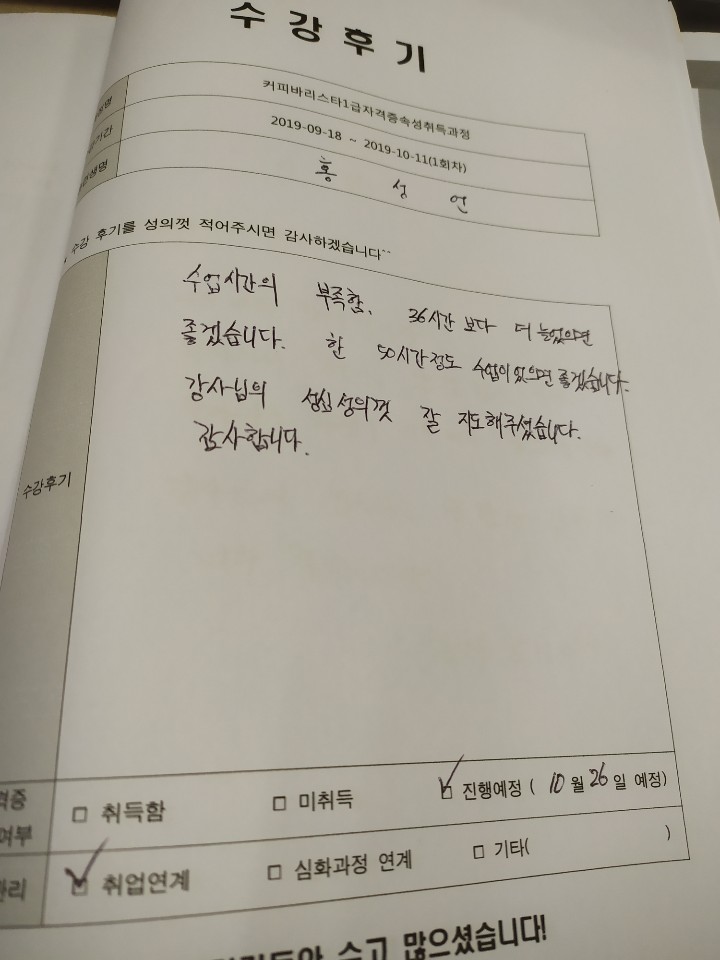 수 강 후 기
커피바리스타1급자격증속성취득과정
기간 2019-09-18 ~ 2019-10-11(1회차)
생명 홍 성 언
수강 후기를 성의껏 적어주시면 감사하겠습니다^^
수업시간의 부족함. 36시간 보다 더 늘었으면
좋겠습니다. 한 50시간정도 수업이 있으면 좋겠습니다.
강사님의 성심성의껏 잘 지도해주셨습니다.
감사합니다.
수강후기
격증
여부
□ 취득함 □ 미취득 ☑ 진행예정 ( 10월 26일 예정)
관리 ☑ 취업연계 □ 심화과정 연계 □ 기타( )
수고 많으셨습니다!